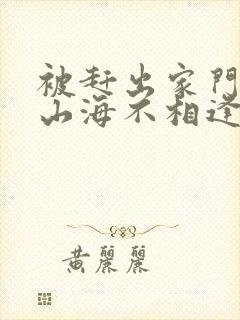 被赶出家門
山海不相逢
黄麗麗